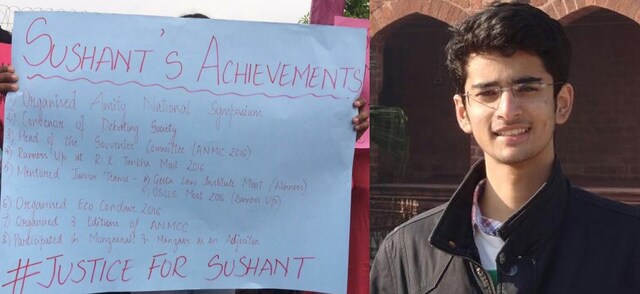 SUSHANT'S ACHIEVEMENTS
1) Organised Amity National Symposium
2) Convenor of Debating Society
3) Head of the Souvenir Committee (ANMC 2016)
4) Runners Up at R.K. Moot 2016
5) Mentored Junior Teams - Geeta Law Institute Moot (Winners)
USLLS Moot 2016 (Runners Up)
6) Organised Eco Conclave 2016
7) Organised 3 Editions of ANMCC
8) Participated in as an
#JUSTICE FOR SUSHANT